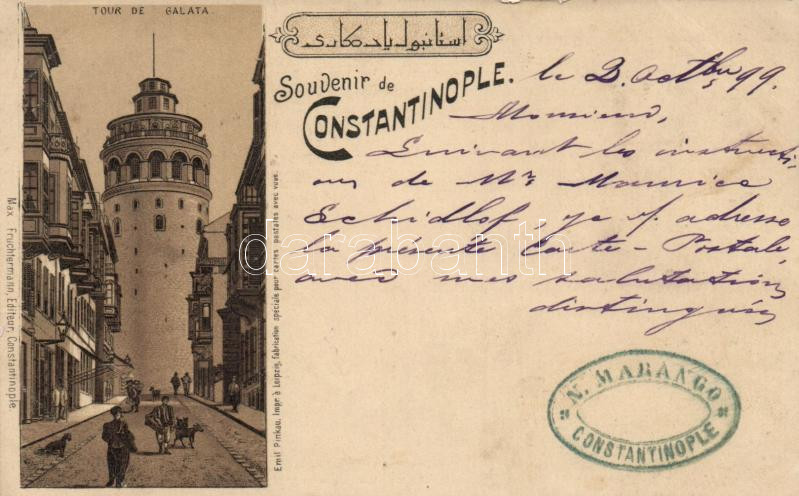 TOUR DE GALATA.
استانبول يادكارى
Souvenir de
CONSTANTINOPLE.
le 3 Octbre 99.
Monsieur,
Suivant les instructi
ons de Mr Maurice
Schidlof je v. adresse
la présente Carte-Postale,
avec mes salutations
distinguées
N. MARANGO
CONSTANTINOPLE
Max Fruchtermann, Editeur, Constantinople.
Emil Pinkau, Impr. à Leipzig, fabrication spéciale pour cartes postales avec vues.
darabanth